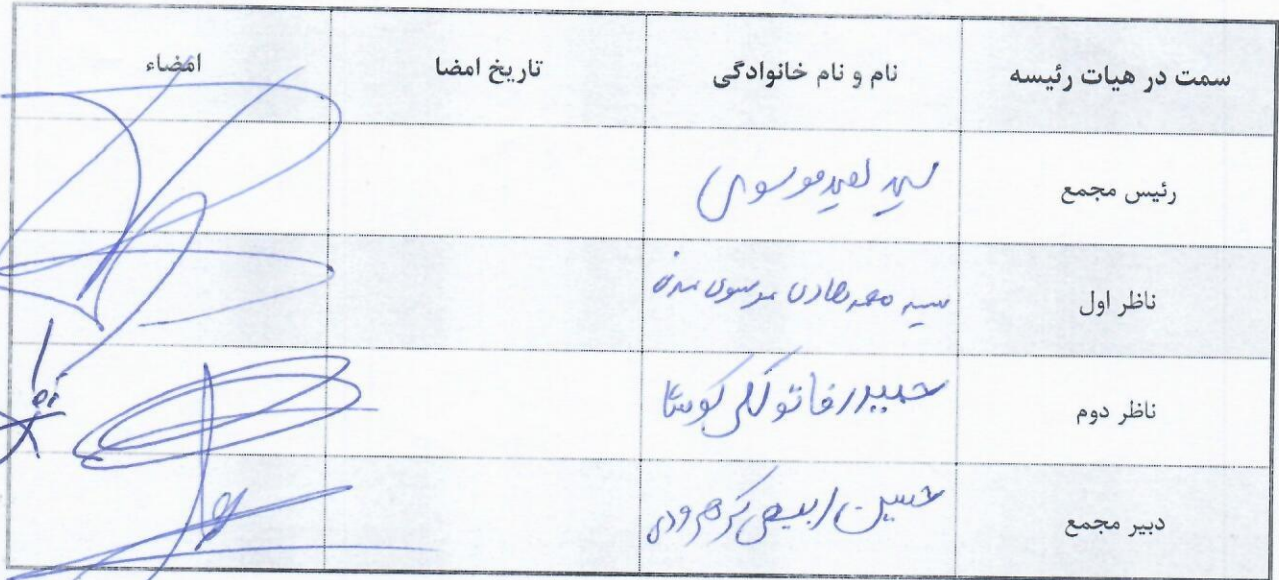 سمت در هیات رئیسه نام و نام خانوادگی تاریخ امضا امضاء
رئیس مجمع سید سعید موسوی
ناظر اول سید محمد هادی موسوی
ناظر دوم حمیدرضا توکلی کوشا
دبیر مجمع حسین ربیعی کرهرودی